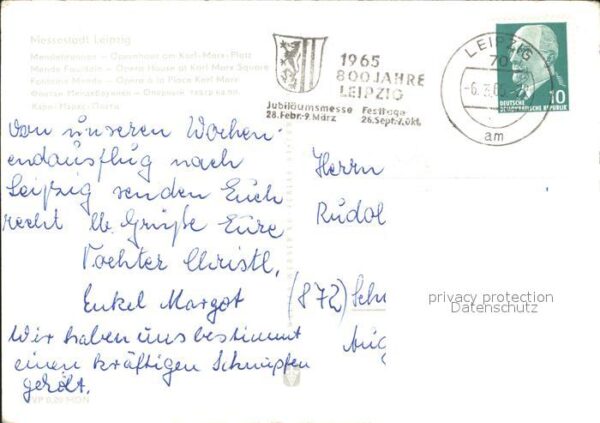 Messestadt Leipzig
Mendebrunnen – Opernhaus am Karl-Marx-Platz
Mende Fountain – Opera House at Karl Marx Square
Fontaine Mende – Opéra à la Place Karl Marx
Фонтан Мендебруннен – Оперный театр на пл.
Карл-Маркс-Платц
1965
800 JAHRE
LEIPZIG
Jubiläumsmesse Festtage
28.Febr.-9.März 26.Sept.-7.Okt.
LEIPZIG
70
am
10
DEUTSCHE
DEMOKRATISCHE REPUBLIK
Von unseren Wochen-
endausflug nach
Leipzig senden Euch
recht lb. Grüße Eure
Tochter Christl,
Enkel Margot
Wir haben uns bestimmt
einen kräftigen Schnupfen
geholt.
Herrn
Rudol
(872) Sch
privacy protection
Datenschutz